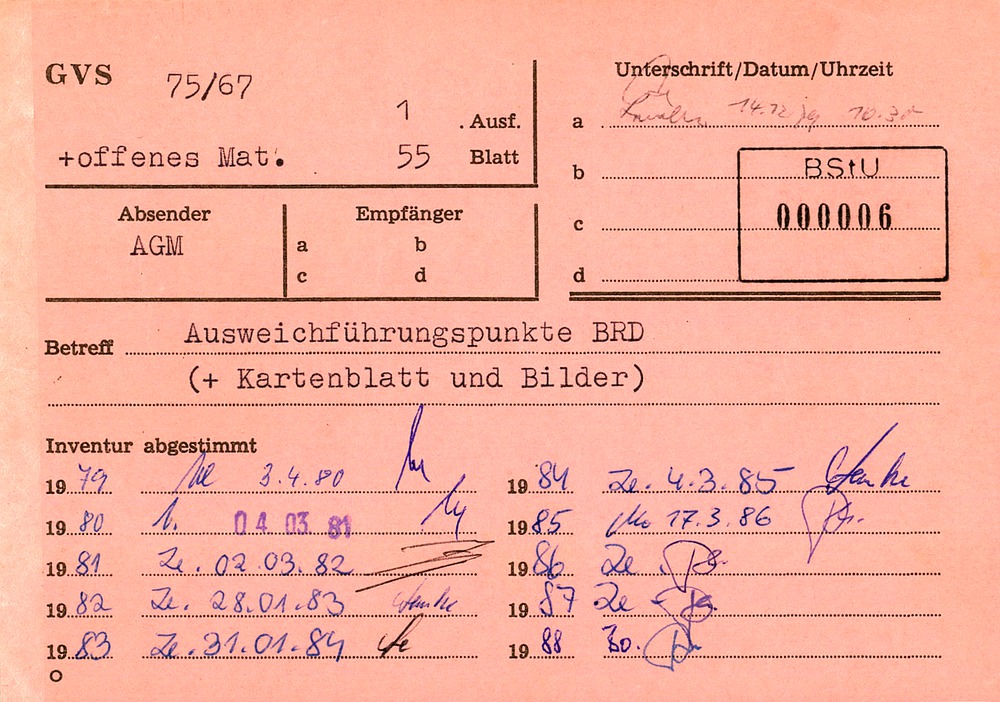 GVS 75/67
1 . Ausf.
+offenes Mat. 55 Blatt
Absender
AGM
Empfänger
a b
c d
Unterschrift/Datum/Uhrzeit
a 14.12 10.30
b
c
d
BStU
000006
Betreff Ausweichführungspunkte BRD
(+ Kartenblatt und Bilder)
Inventur abgestimmt
19 79 3.4.80
19 80 04 03. 81
19 81 Ze. 02.03.82
19 82 Ze. 28.01.83
19 83 Ze. 31.01.84
19 84 Ze. 4.3.85
19 85 17.3.86
19 86 Ze
19 87 Ze
19 88 Bo.